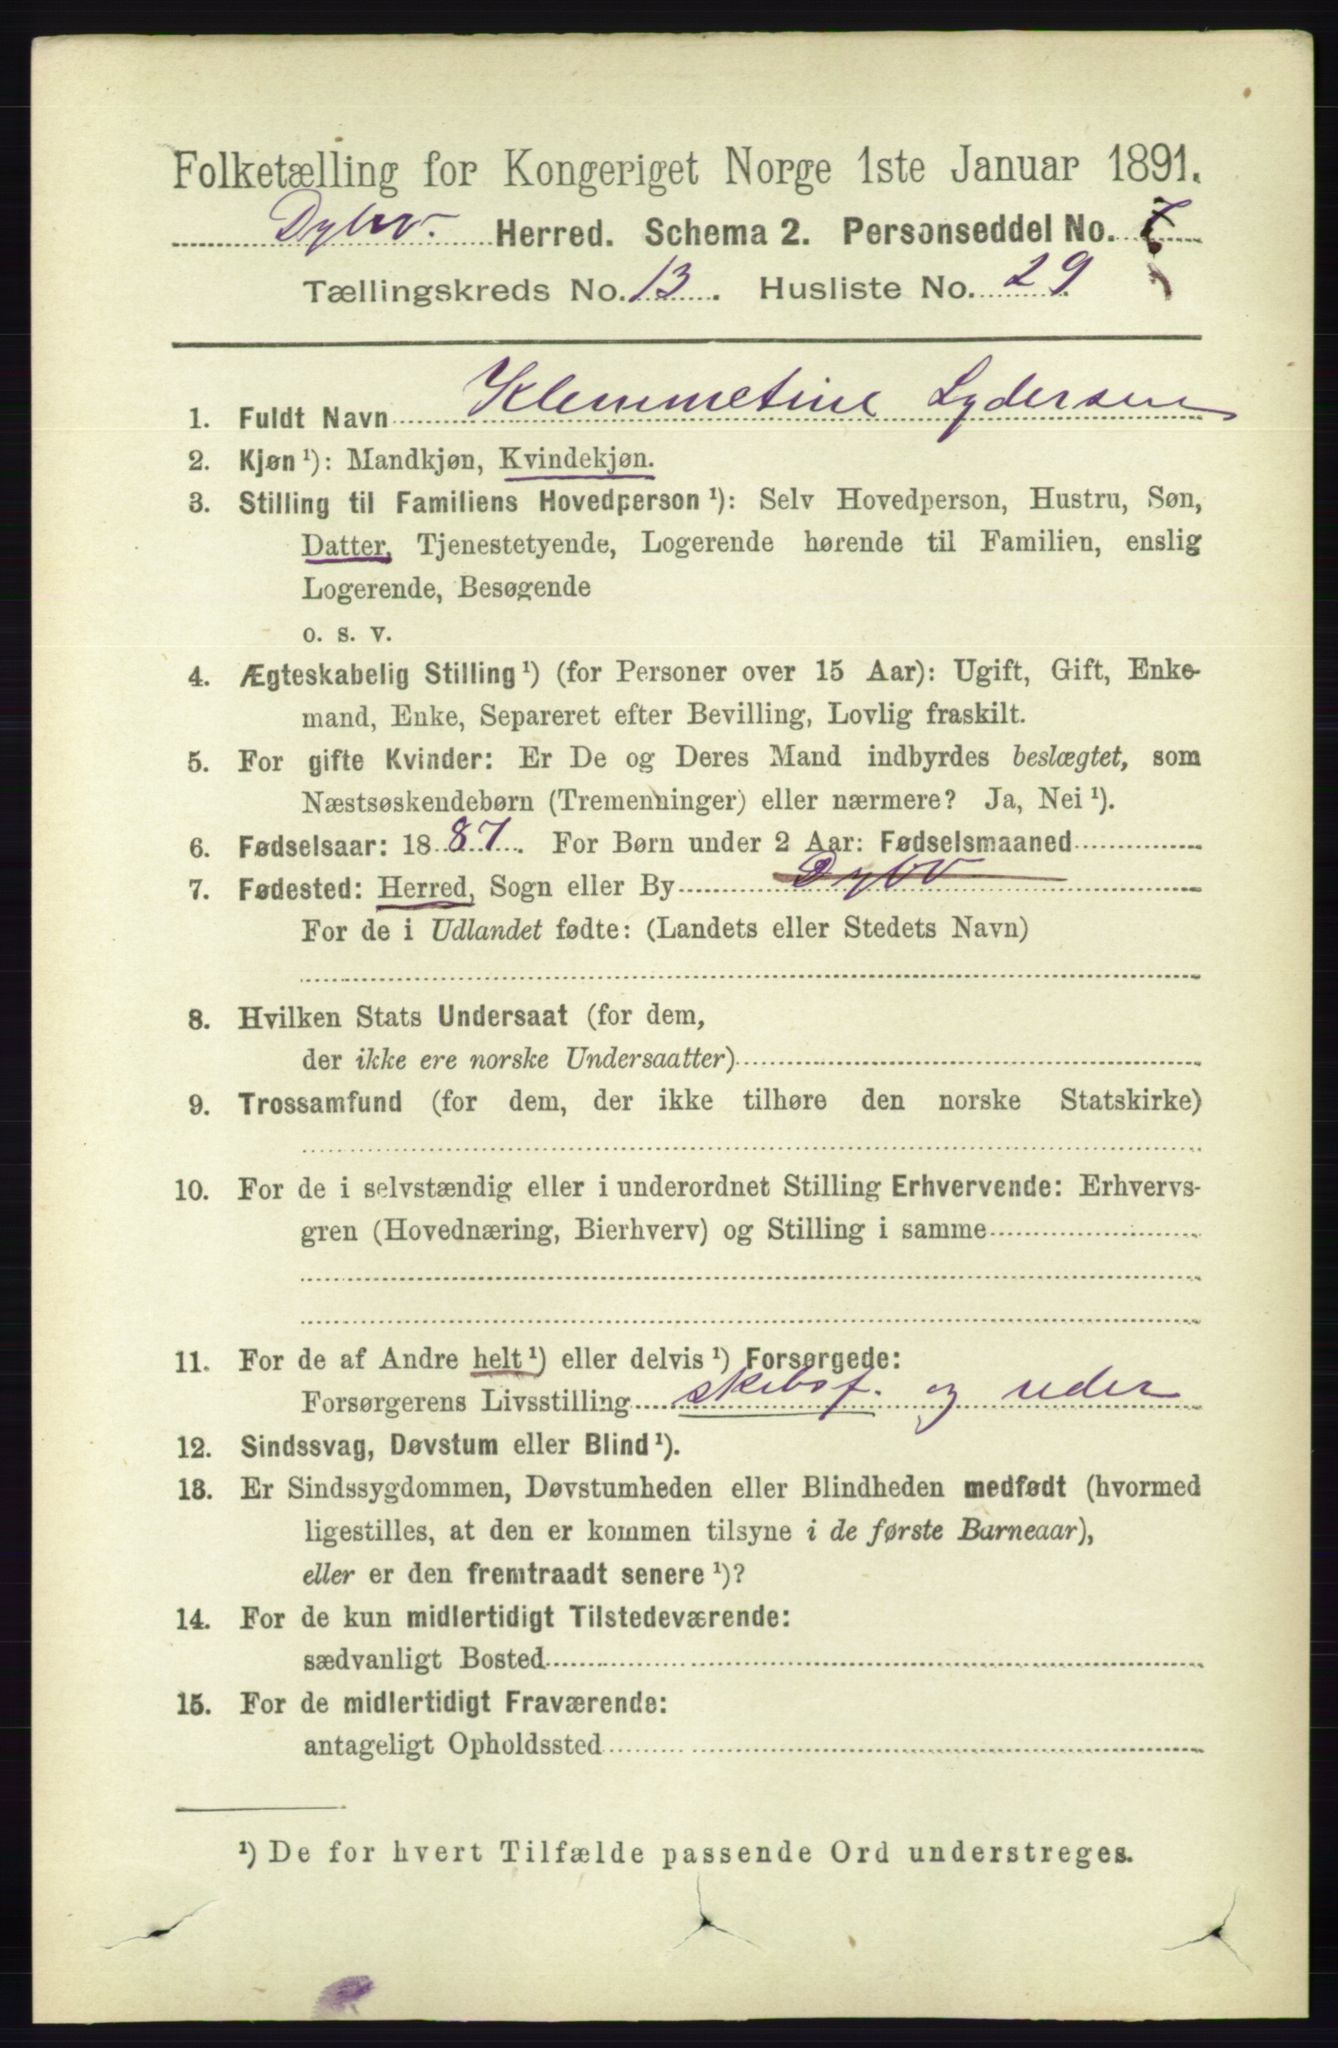 Folketælling for Kongeriget Norge 1ste Januar 1891.
Dybv. Herred. Schema 2. Personseddel No. 7
Tællingskreds No. 13. Husliste No. 29
1. Fuldt Navn Klemmetine Lydersen
2. Kjøn ¹): Mandkjøn, Kvindekjøn.
3. Stilling til Familiens Hovedperson ¹): Selv Hovedperson, Hustru, Søn,
Datter, Tjenestetyende, Logerende hørende til Familien, enslig
Logerende, Besøgende
o. s. v.
4. Ægteskabelig Stilling ¹) (for Personer over 15 Aar): Ugift, Gift, Enke-
mand, Enke, Separeret efter Bevilling, Lovlig fraskilt.
5. For gifte Kvinder: Er De og Deres Mand indbyrdes beslægtet, som
Næstsøskendebørn (Tremenninger) eller nærmere? Ja, Nei ¹).
6. Fødselsaar: 1887. For Børn under 2 Aar: Fødselsmaaned
7. Fødested: Herred, Sogn eller By Dybv
For de i Udlandet fødte: (Landets eller Stedets Navn)
8. Hvilken Stats Undersaat (for dem,
der ikke ere norske Undersaatter)
9. Trossamfund (for dem, der ikke tilhøre den norske Statskirke)
10. For de i selvstændig eller i underordnet Stilling Erhvervende: Erhvervs-
gren (Hovednæring, Bierhverv) og Stilling i samme
11. For de af Andre helt ¹) eller delvis ¹) Forsørgede:
Forsørgerens Livsstilling skibsf. og reder
12. Sindssvag, Døvstum eller Blind ¹).
13. Er Sindssygdommen, Døvstumheden eller Blindheden medfødt (hvormed
ligestilles, at den er kommen tilsyne i de første Barneaar),
eller er den fremtraadt senere ¹)?
14. For de kun midlertidigt Tilstedeværende:
sædvanligt Bosted
15. For de midlertidigt Fraværende:
antageligt Opholdssted
¹) De for hvert Tilfælde passende Ord understreges.